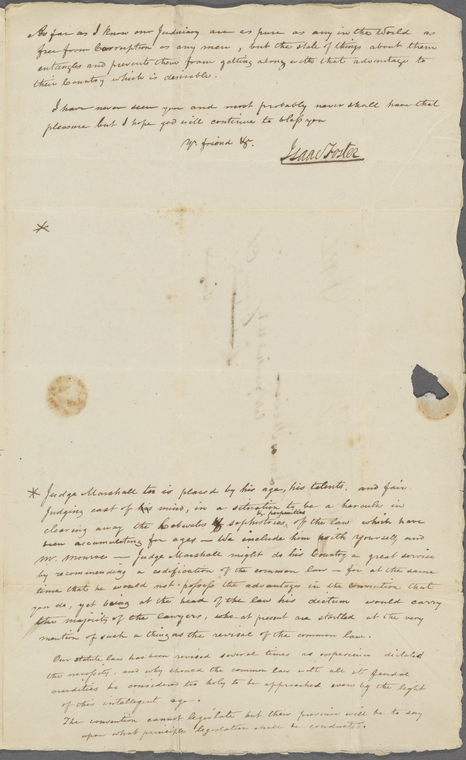 As far as I know our Judiciary are as pure as any in the World as
free from Corruption as any men, but the state of things about them
entangles and prevents them from getting along with that advantage to
their Country which is desirable.
I have never seen you and most probably never shall have that
pleasure but I hope god will continue to bless you
Yr friend &c.
Isaac Foster
*
* Judge Marshall too is placed by his age, his talents, and fair
Judging cast of his mind, in a situation to be a hercules in
clearing away the Cobwebs of sophistries, of the law which have
been accumulating for ages — We include him with Yourself, and
Mr. Monroe — Judge Marshall might do his Country a great service
by recommending a codification of the common law — for at the same
time that he would not possess the advantages in the Convention that
you do, yet being at the head of the law his dictum would carry
the majority of the lawyers, who at present are startled at the very
mention of such a thing as the revisal of the common law.
Our statute law has been revised several times as experience dictated
the necessity, and why should the common law with all it feudal
crudities be considered too holy to be approached even by the light
of this intelligent age.
The convention cannot legislate but their province will be to say
upon what principle legislation shall be conducted.